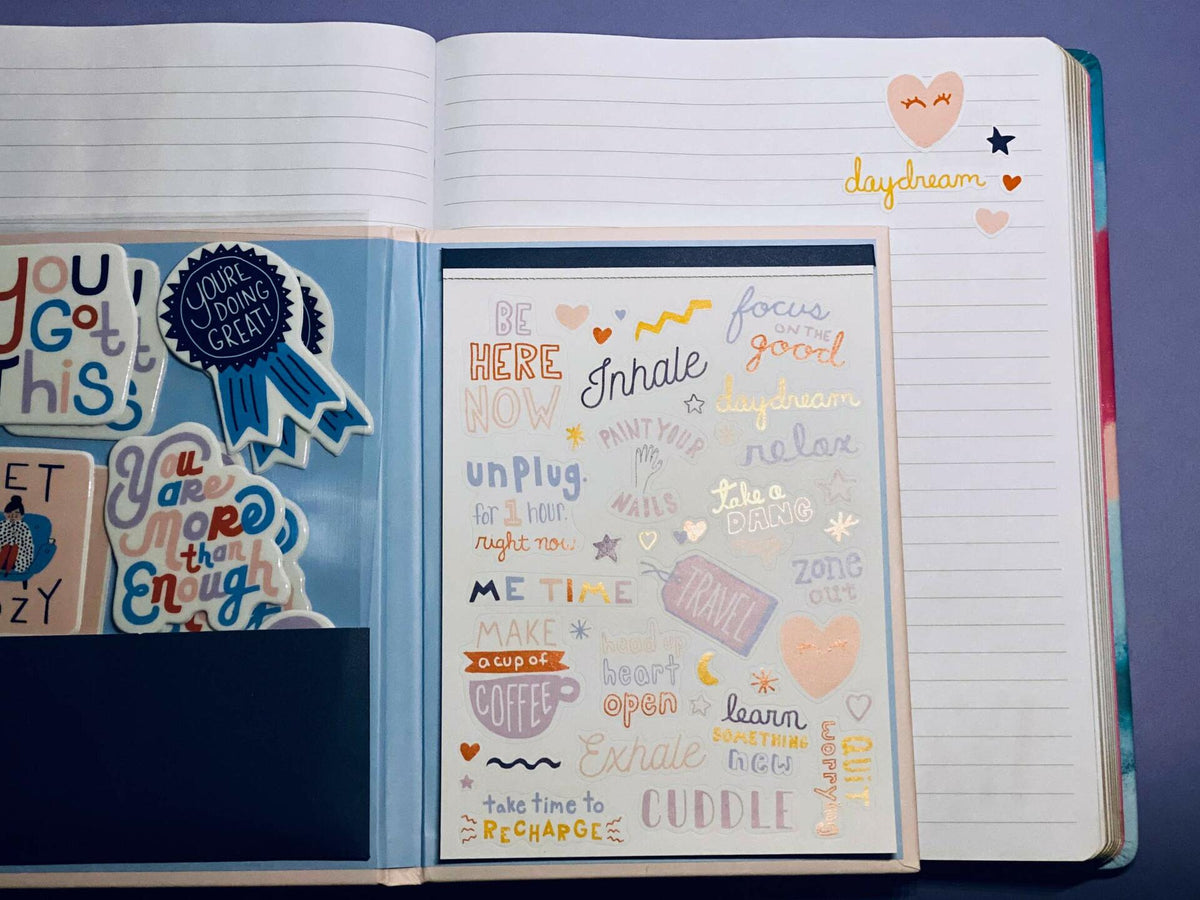 daydream
YOU
GOT
THIS
YOU'RE
DOING
GREAT!
You
are
more
than
Enough
BE
HERE
NOW
Inhale
focus
ON THE
good
daydream
PAINT YOUR
NAILS
relax
unplug.
for 1 hour.
right now
take a
DANG
ME TIME
TRAVEL
zone
out
MAKE
a cup of
COFFEE
head up
heart
open
learn
SOMETHING
new
Exhale
QUIT
worrying
take time to
RECHARGE
CUDDLE